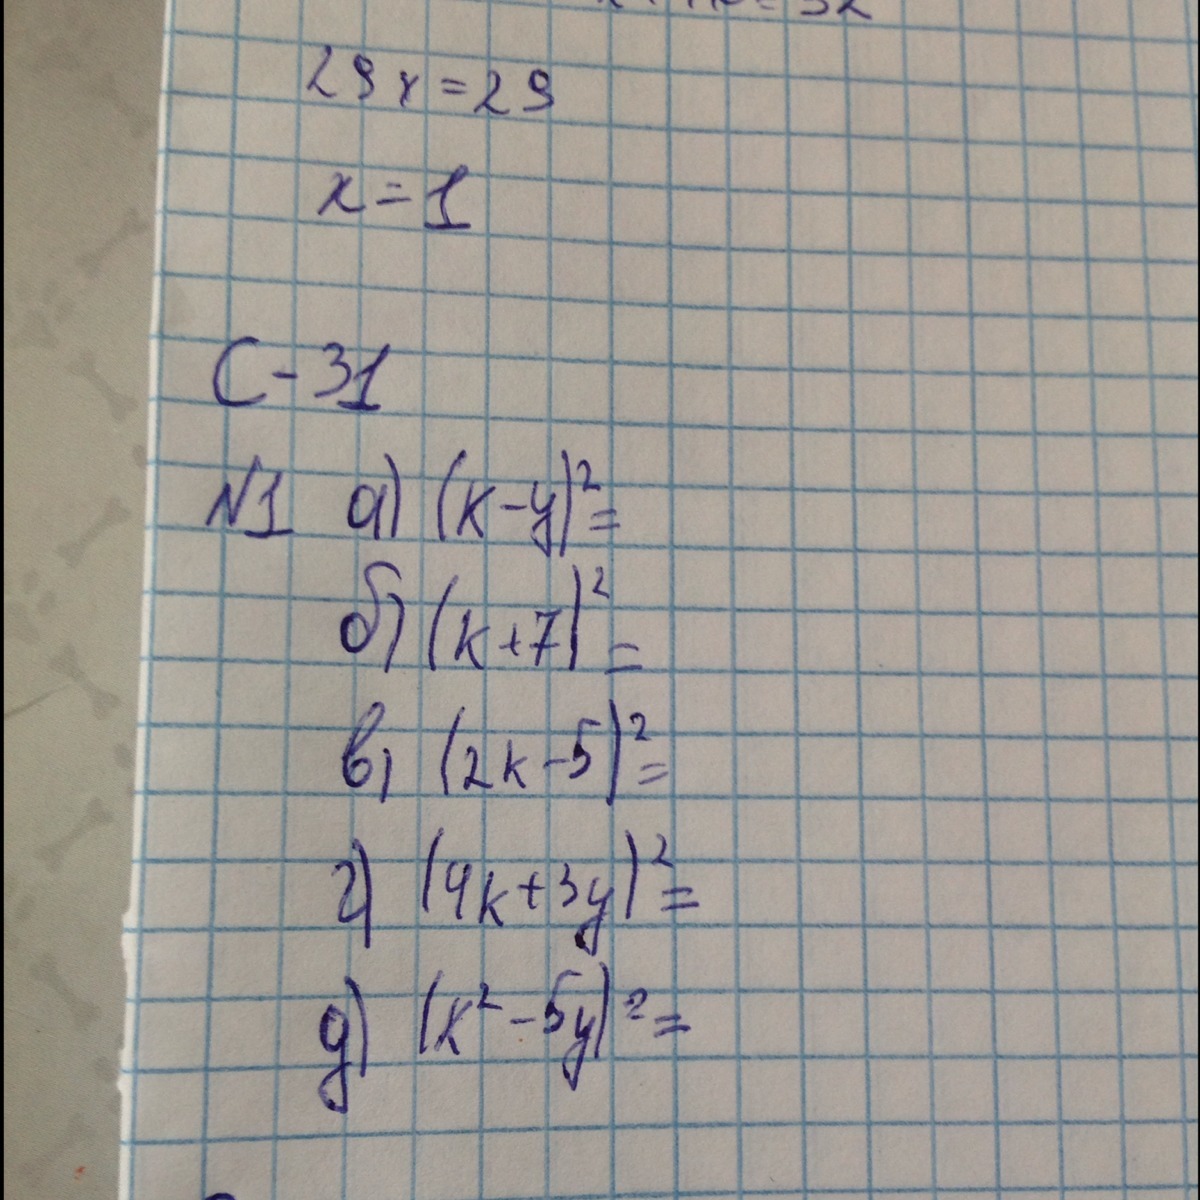 29x=29
x=1
С-31
N1 а) (k-y)²=
б) (k+7)²=
в) (2k-5)²=
г) (4k+3y)²=
д) (k²-5y)²=